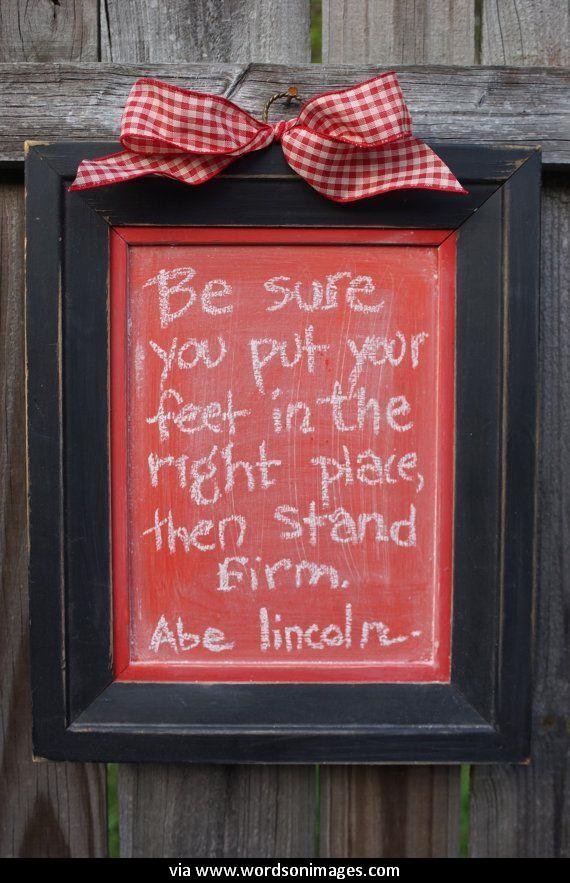 Be sure
you put your
feet in the
right place,
then stand
firm.
Abe lincoln
via www.wordsonimages.com